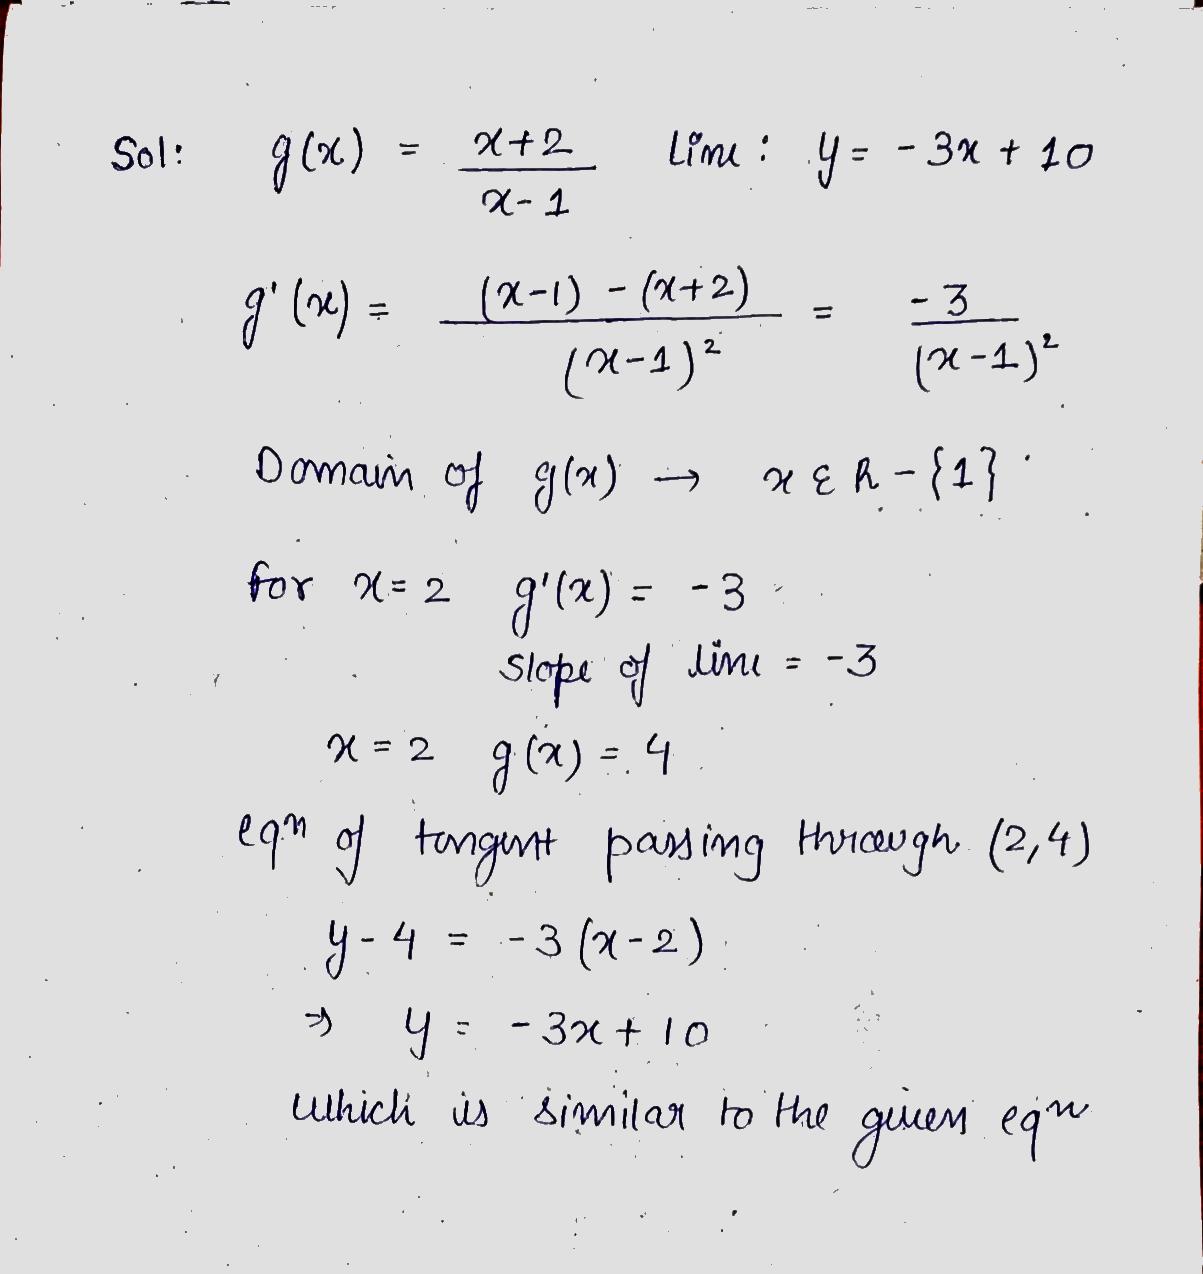 Sol: g(x) = x+2 / x-1 Line: y = -3x + 10
g'(x) = (x-1) - (x+2) / (x-1)² = -3 / (x-1)²
Domain of g(x) → x ε R - {1}
for x = 2 g'(x) = -3
Slope of line = -3
x = 2 g(x) = 4
eqn of tangent passing through (2,4)
y - 4 = -3(x-2)
⇒ y = -3x + 10
which is similar to the given eqn